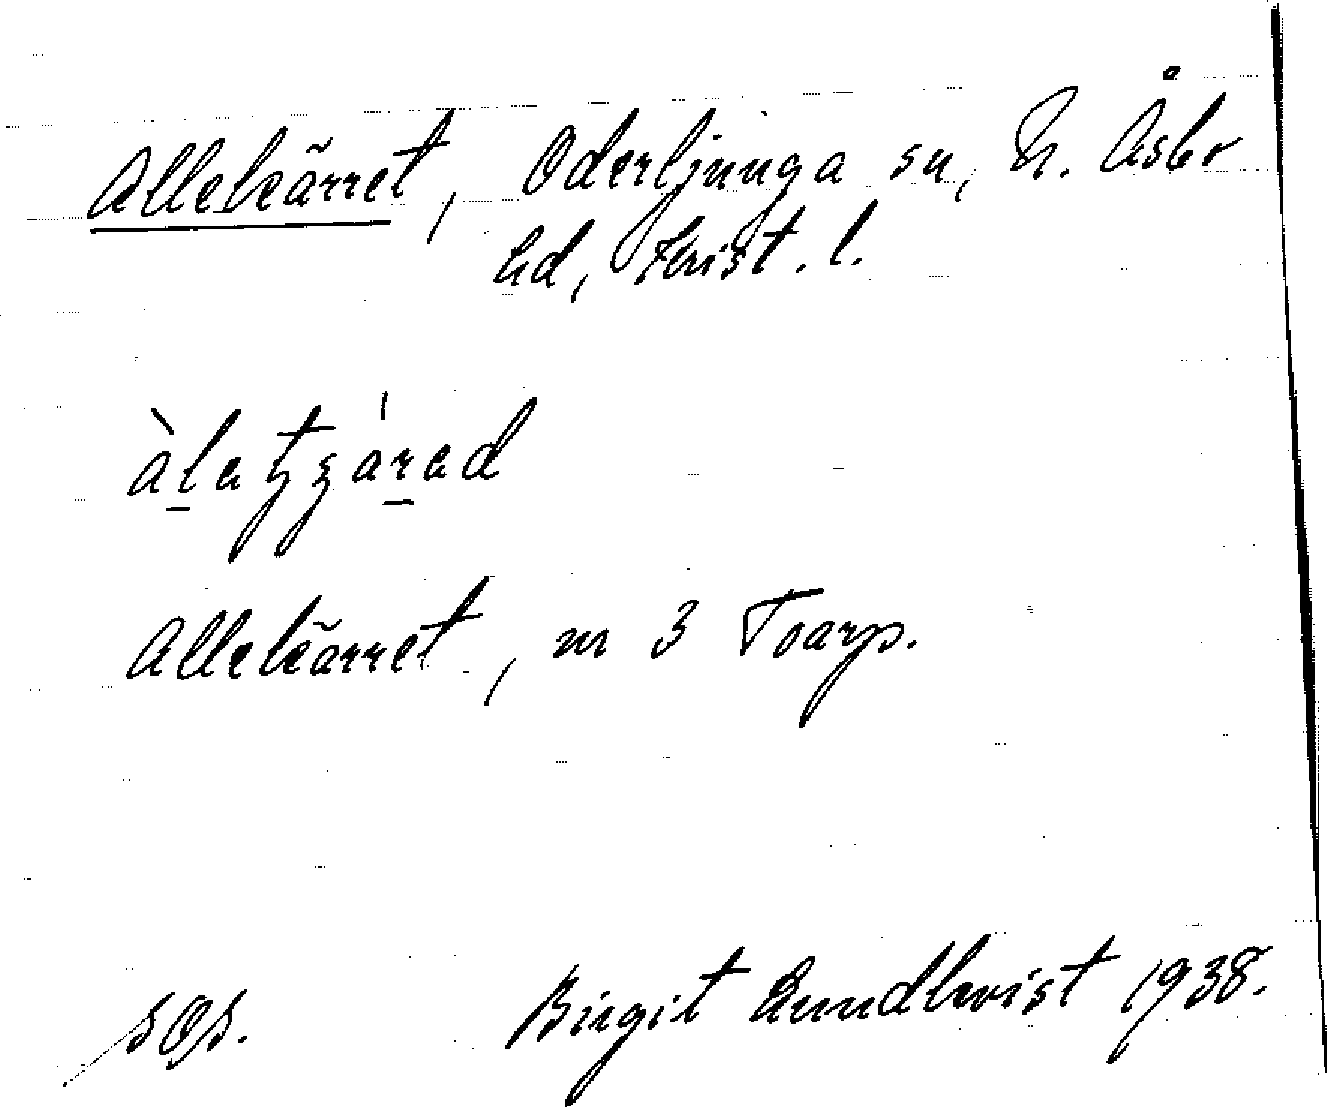 Allekärret, Oderljunga sn, N. Åsbo
hd, Krist. l.
Allekärret, nr 3 Toarp.
SOS. Birgit Lundkvist 1938.